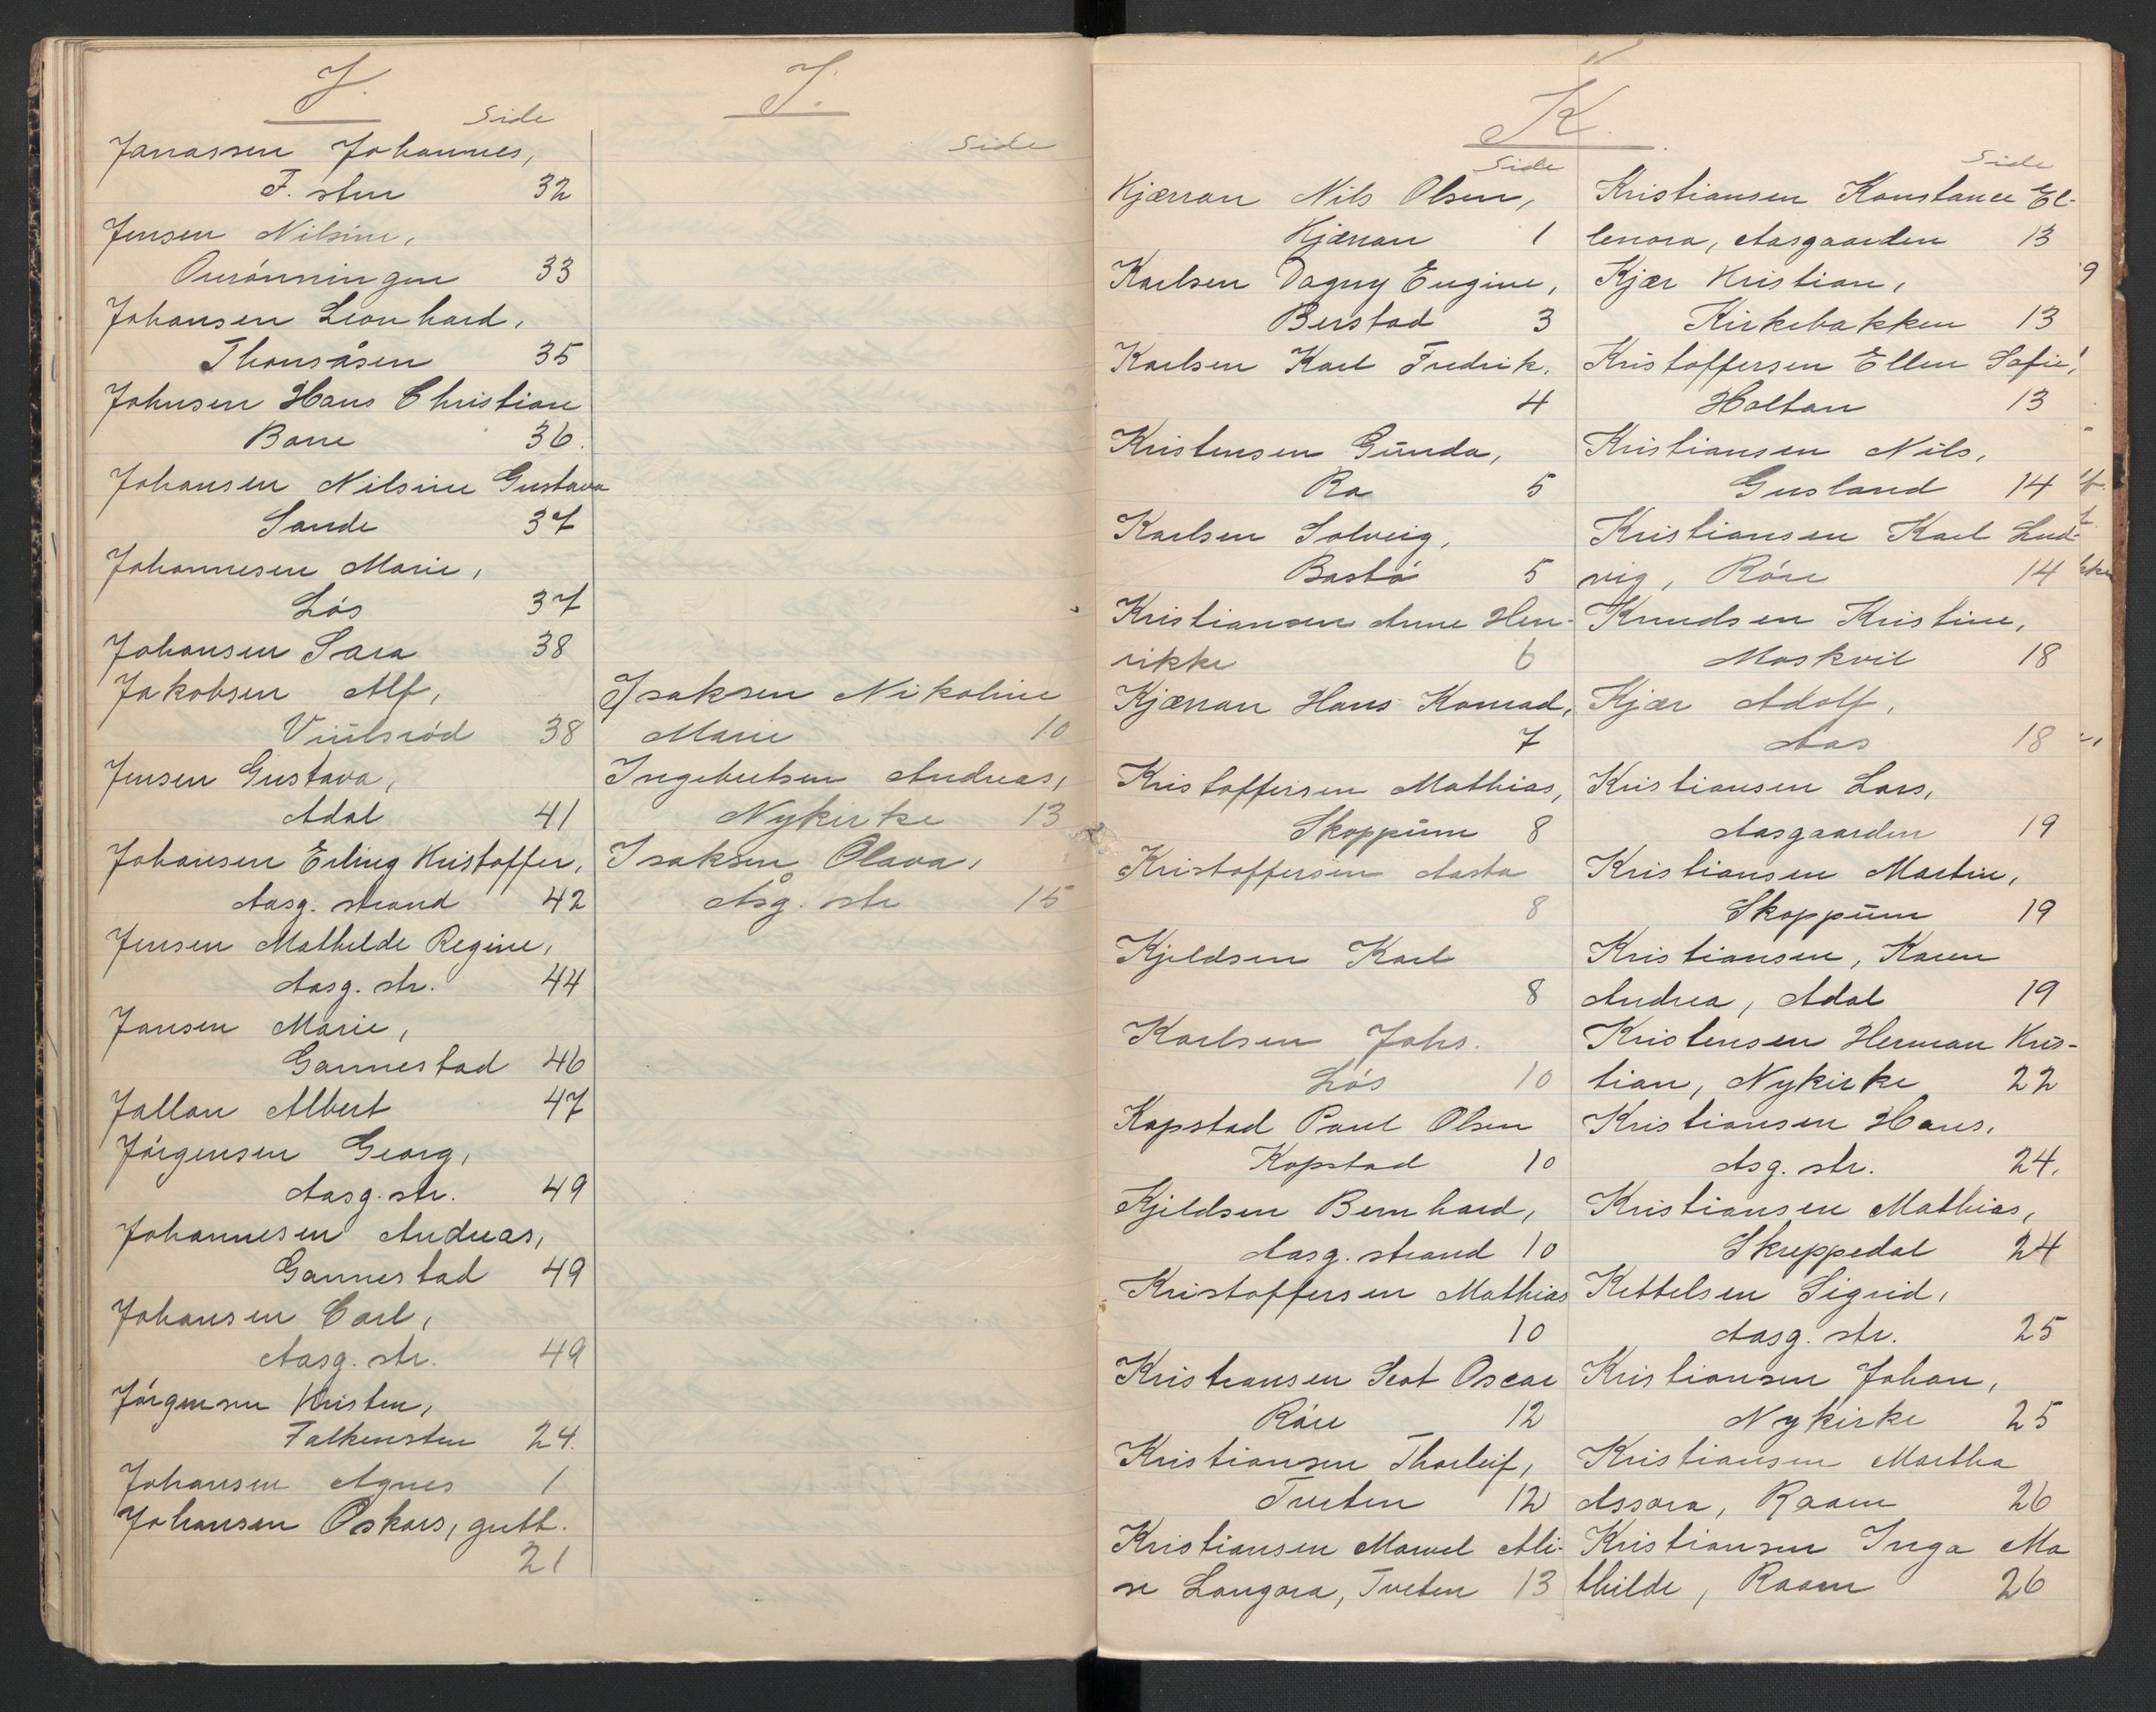 J.
Side
Janassen Johannes,
F. sten 32
Jensen Nilsine,
Ourönningen 33
Johansen Leonhard,
Thonsåsen 35
Johnsen Hans Christian
Bane 36.
Johansen Nilsine Gustava
Sande 37
Johannesen Marie,
Lös 37
Johansen Sara 38
Jakobsen Alf,
Viulsröd 38
Jensen Gustava,
Adal 41
Johansen Erling Kristoffer,
Aasg. strand 42
Jensen Mathilde Regine,
Aasg. str. 44
Jansen Marie,
Gannestad 46
Jallan Albert 47
Jörgensen Georg,
Aasg. str. 49
Johannesen Andreas,
Gannestad 49
Johansen Carl,
Aasg. str. 49
Jörgensen Kristen,
Falkensten 24.
Johansen Agnes 1
Johansen Oskars, gutt.
21
I.
Side
Isaksen Nikoline
Marie 10
Ingebretsen Andreas,
Nykirke 13
Isaksen Olava,
Åsg. str 15
K.
Side
Kjærran Nils Olsen,
Kjærran 1
Karlsen Dagny Eugine,
Berstad 3
Karlsen Karl Fredrik.
4
Kristensen Gunda,
Ra 5
Karlsen Solveig,
Bastö 5
Kristiansen Anne Hen-
rikke 6
Kjærran Hans Konrad,
7
Kristoffersen Mathias,
Skoppum 8
Kristoffersen Aasta
8
Kjeldsen Karl
8
Karlsen Johs.
Lös 10
Kopstad Paul Olsen
Kopstad 10
Kjeldsen Bernhard,
Aasg. strand 10
Kristoffersen Mathias
10
Kristiansen Seat Oscar
Röre 12
Kristiansen Thorleif,
Tveten 12
Kristiansen Marvel Ali-
se Langora, Tveten 13
Side
Kristiansen Konstance El-
lenora, Aasgaarden 13
Kjær Kristian,
Kirkebakken 13
Kristoffersen Ellen Sofie,
Holtan 13
Kristiansen Nils,
Gusland 14
Kristiansen Karl Lud-
vig, Röre 14
Knudsen Kristine,
Moskvil 18
Kjær Adolf,
Aas 18
Kristiansen Lars,
Aasgaarden 19
Kristiansen Martin,
Skoppum 19
Kristiansen, Karen
Andrea, Adal 19
Kristensen Herman Kris-
tian, Nykirke 22
Kristiansen Hans,
Asg. str. 24.
Kristiansen Mathias,
Skreppedal 24
Kettelsen Sigrid,
Aasg. str. 25
Kristiansen Johan,
Nykirke 25
Kristiansen Martha
Assora, Raaen 26
Kristiansen Inga Ma
thilde, Raaen 26